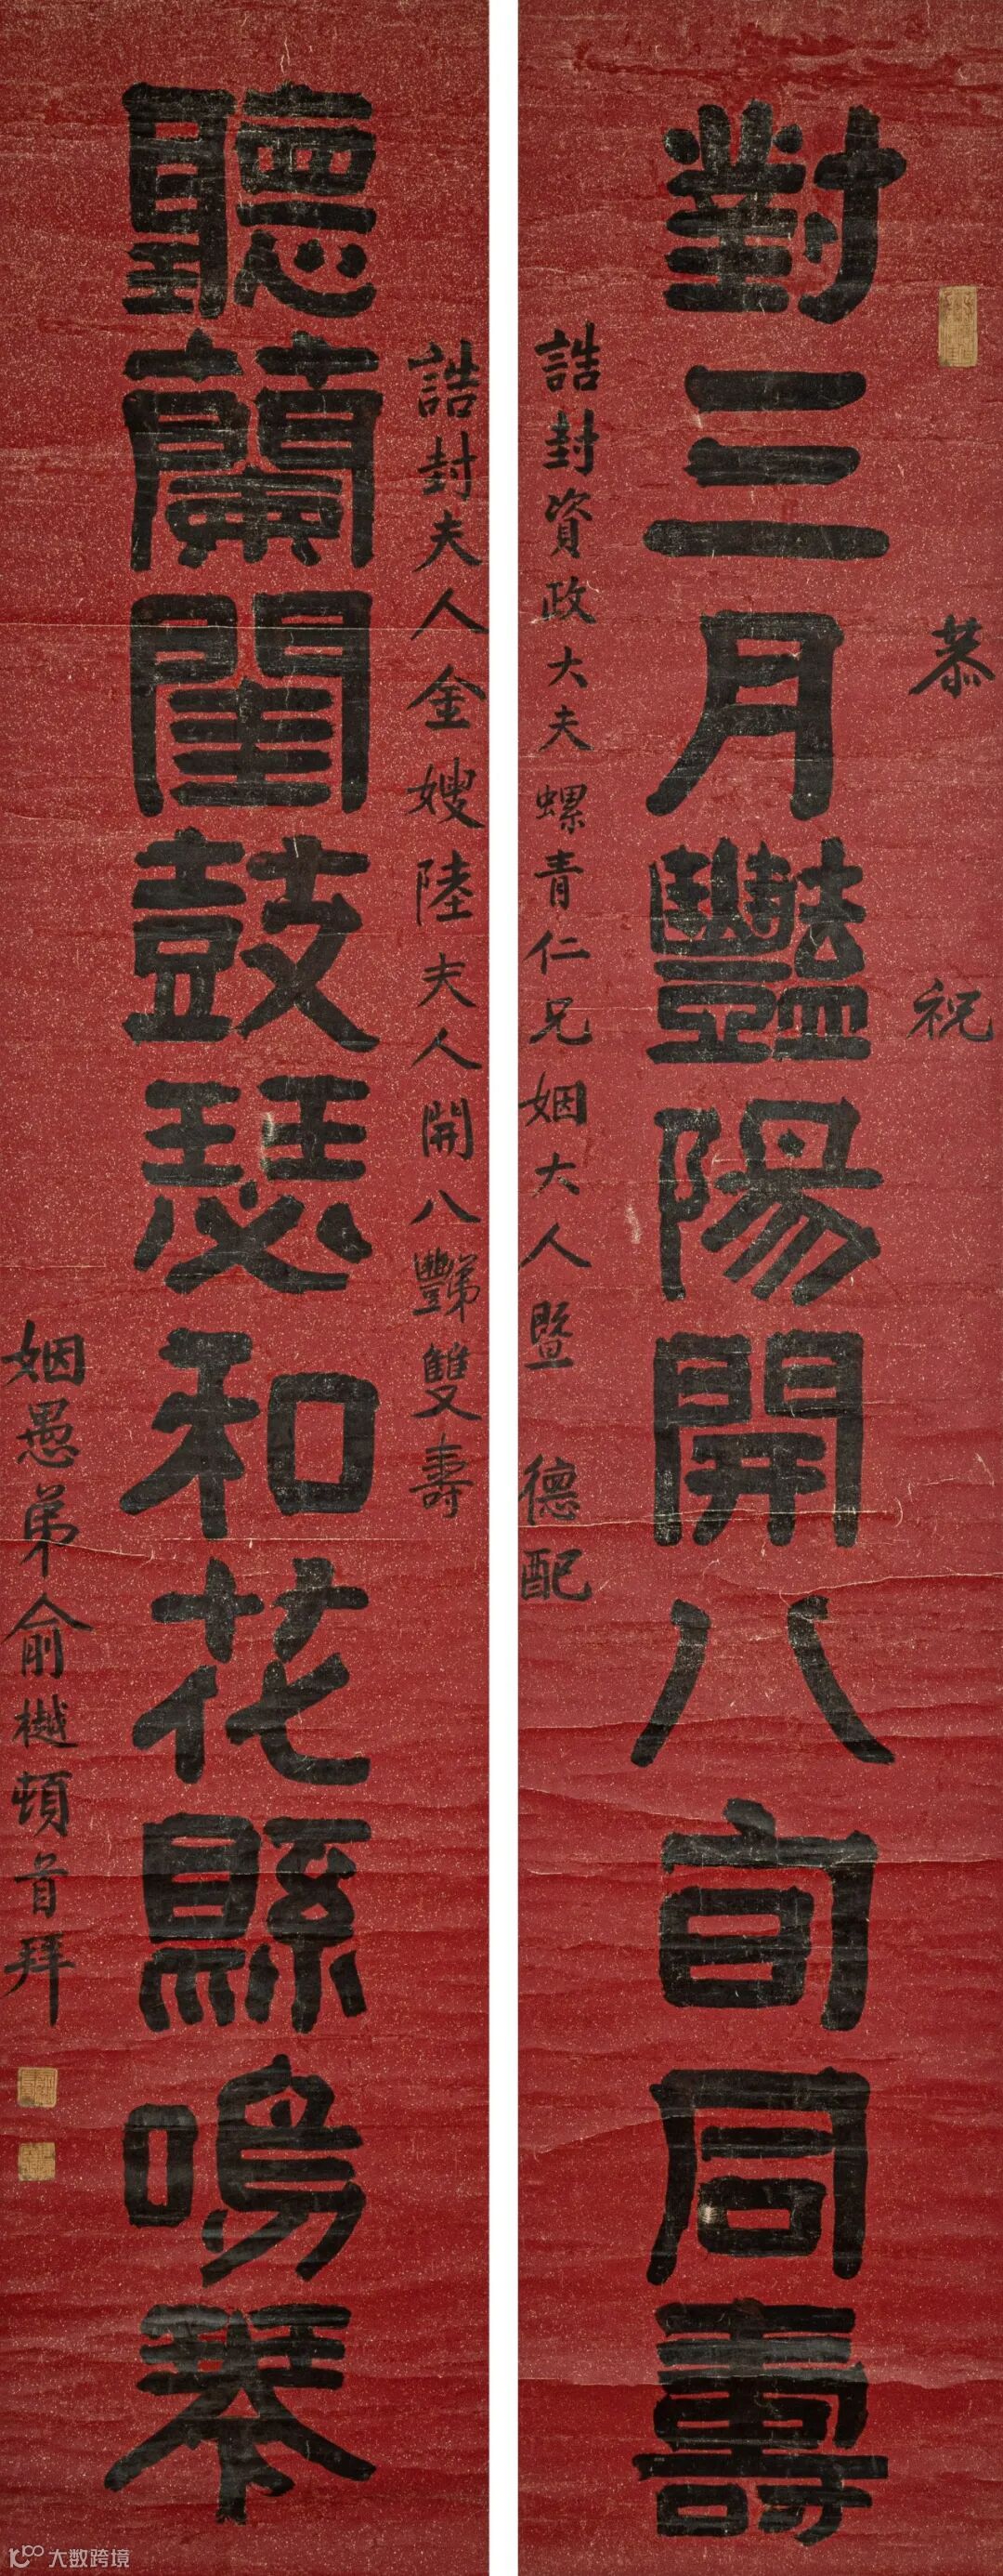 恭祝
對三月豔陽開八旬同壽
誥封資政大夫螺青仁兄姻大人暨 德配
誥封夫人金嫂陸夫人開八豔第雙壽
聽蘭閨鼓瑟和花縣鳴琴
姻愚弟俞樾頓首拜
大数跨境